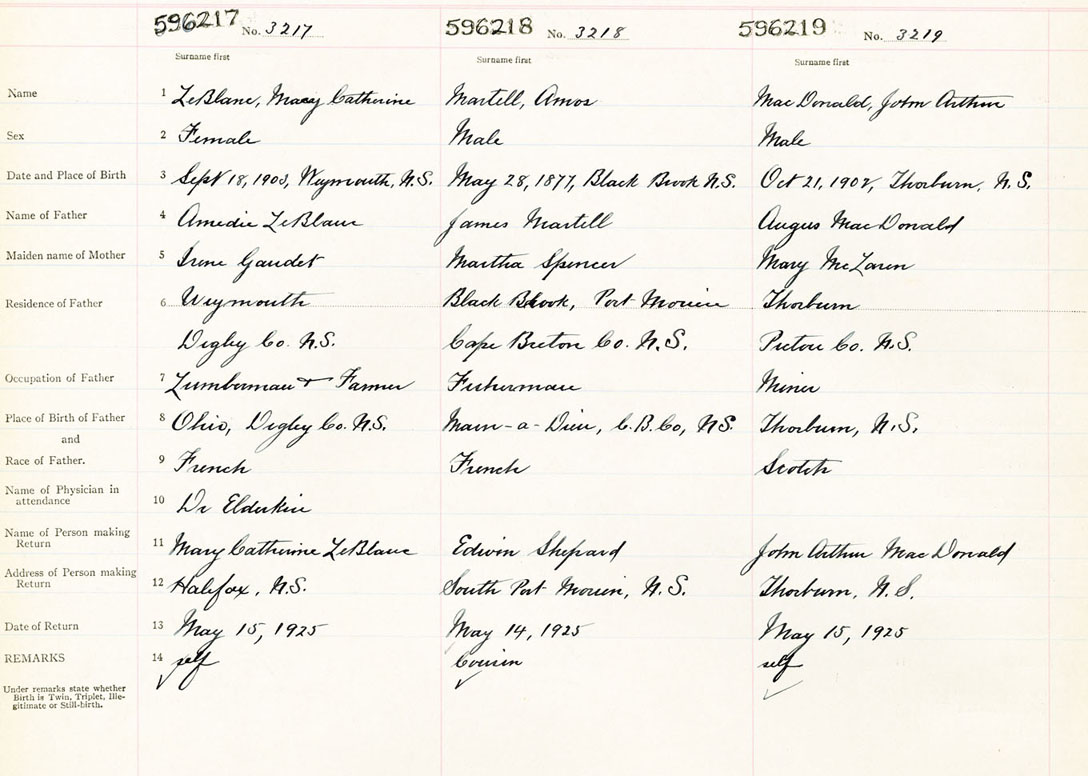 596217 No. 3217 596218 No. 3218 596219 No. 3219
Surname first Surname first Surname first
Name 1 LeBlanc, Mary Catherine Martell, Amos MacDonald, John Arthur
Sex 2 Female Male Male
Date and Place of Birth 3 Sept 18, 1903, Weymouth, N.S. May 28, 1877, Black Brook N.S. Oct 21, 1902, Thorburn, N.S.
Name of Father 4 Amedie LeBlanc James Martell Angus MacDonald
Maiden name of Mother 5 Irene Gaudet Martha Spencer Mary McLaren
Residence of Father 6 Weymouth Black Brook, Port Morien Thorburn
Digby Co. N.S. Cape Breton Co. N.S. Pictou Co. N.S.
Occupation of Father 7 Lumberman & Farmer Fisherman Miner
Place of Birth of Father 8 Ohio, Digby Co. N.S. Main-a-Dieu, C.B. Co, N.S. Thorburn, N.S.
and
Race of Father. 9 French French Scotch
Name of Physician in
attendance 10 Dr Elderkin
Name of Person making
Return 11 Mary Catherine LeBlanc Edwin Shepard John Arthur MacDonald
Address of Person making
Return 12 Halifax, N.S. South Port Morien, N.S. Thorburn, N.S.
Date of Return 13 May 15, 1925 May 14, 1925 May 15, 1925
REMARKS 14 self Cousin self
Under remarks state whether
Birth is Twin, Triplet, Ille-
gitimate or Still-birth.